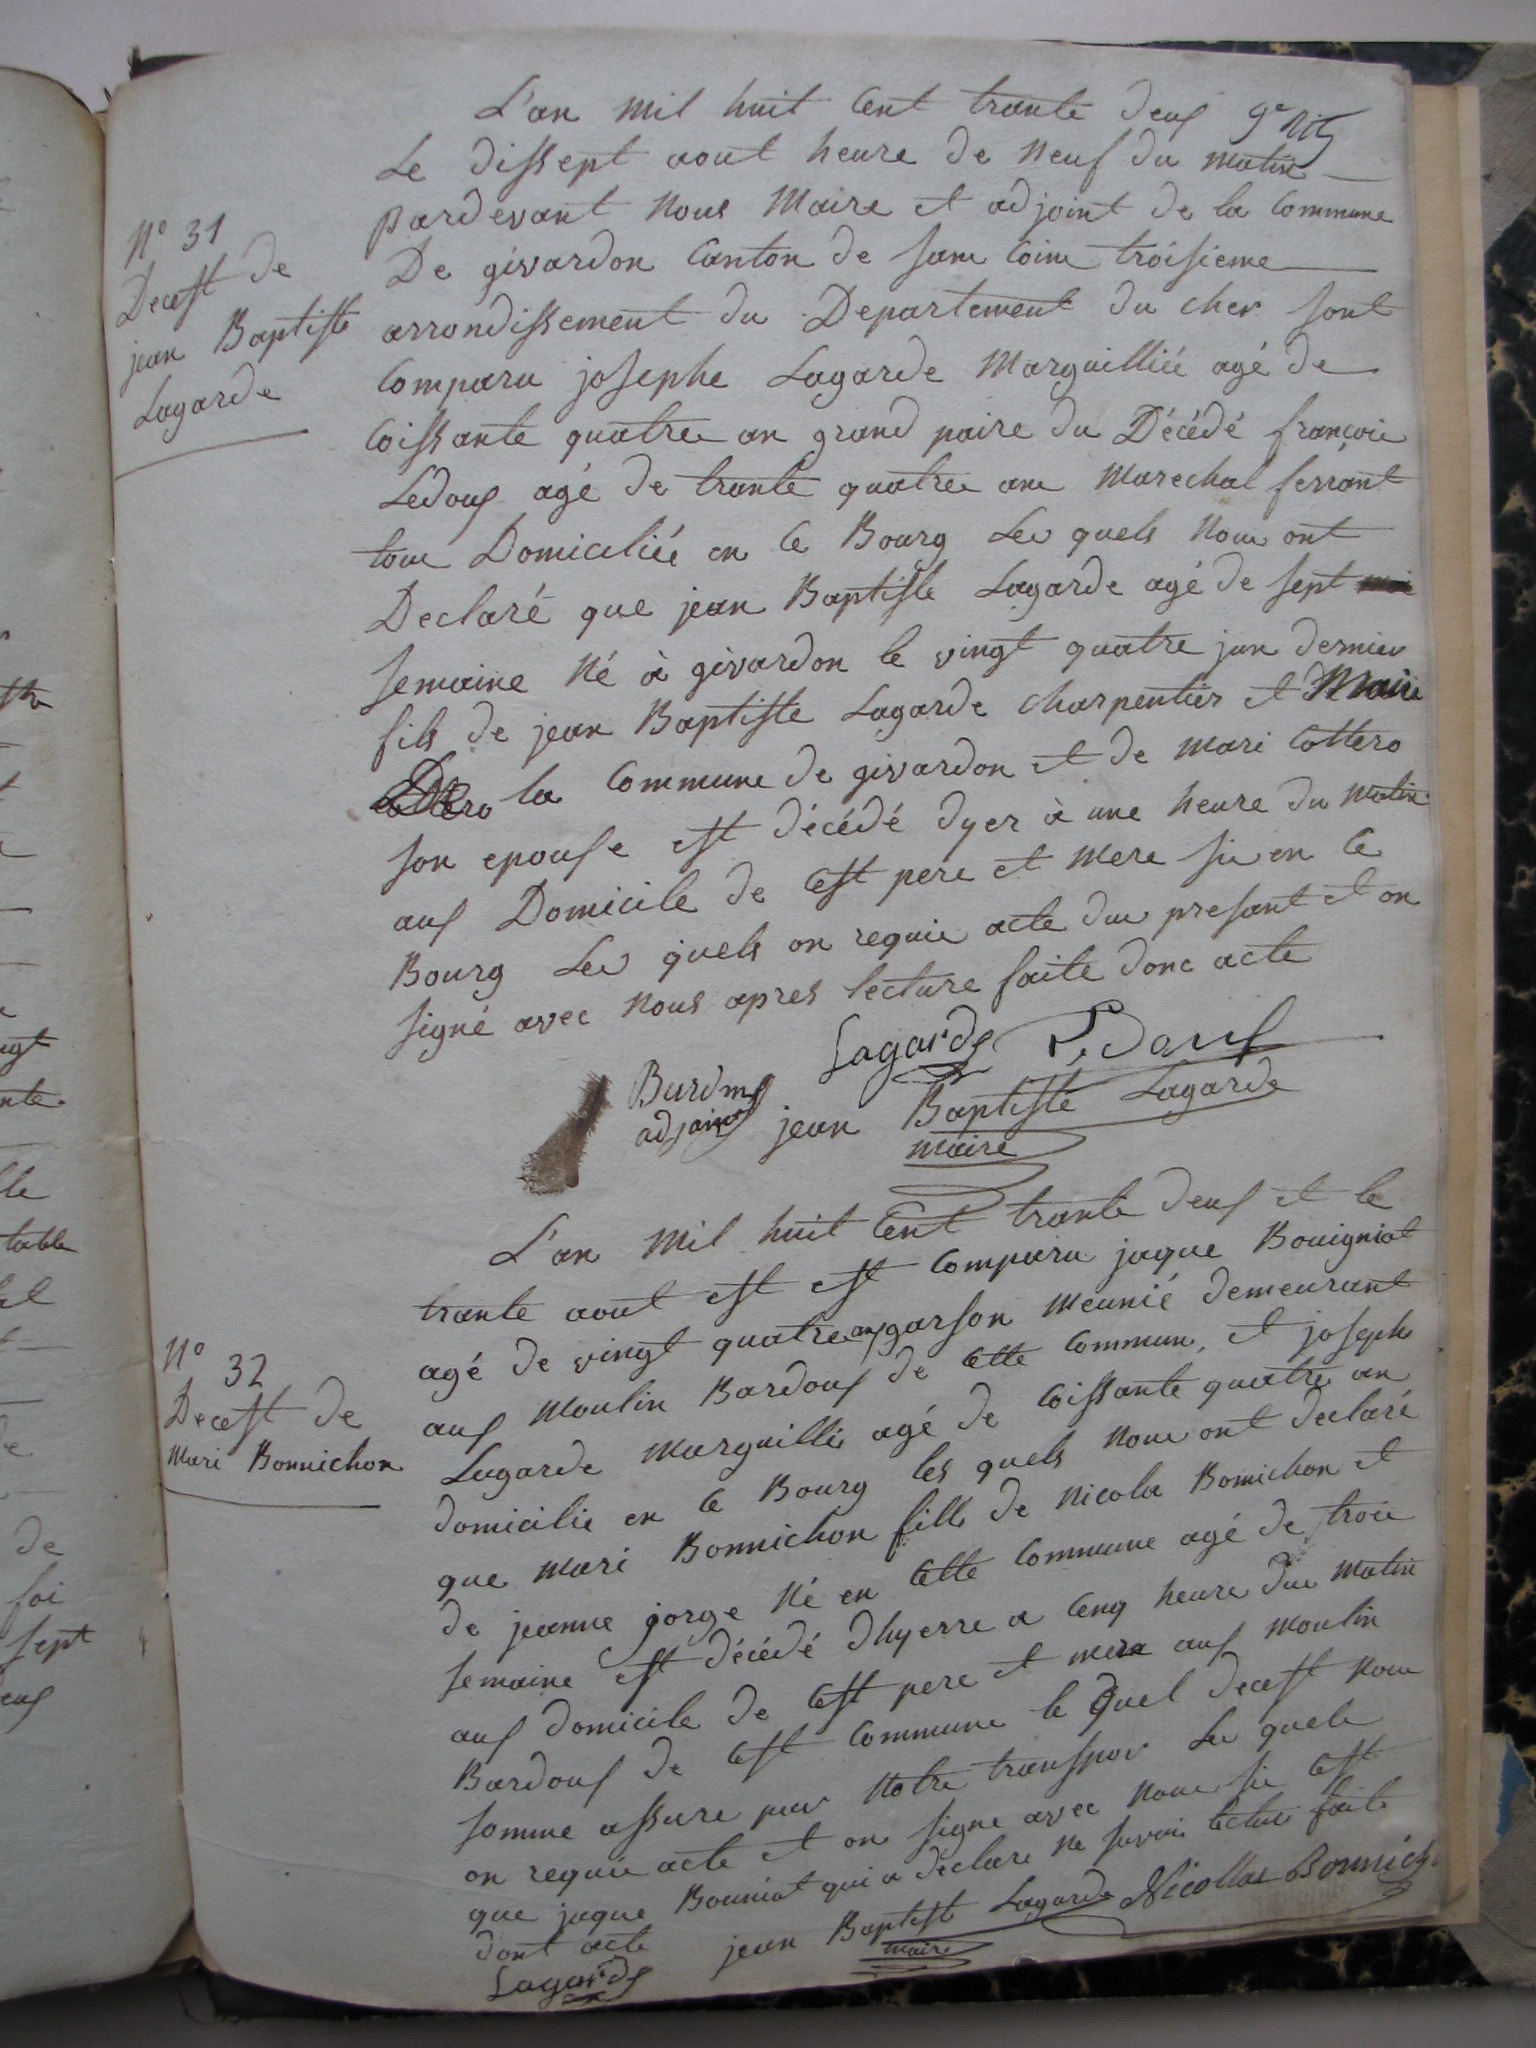 L'an mil huit Cent trante deuf
Le dissept aout heure de Neuf du matin
pardevant Nous Maire et adjoint de la Commune
De givardon Canton de san coin troisieme
arrondissement du Departement du cher sont
Comparu josephe Lagarde Marguillié agé de
Coissante quatre an grand paire du Décédé françoie
Ledouf agé de trante quatre ans Marechal ferrant
tous Domicilié en Ce Bourg Les quels Nous ont
Declaré que jean Baptiste Lagarde agé de sept
semaine Né à givardon le vingt quatre jun dernier
fils de jean Baptiste Lagarde charpentier et Maire
De la Commune de givardon et de mari Cottero
son epouse est décédé dyer à une heure du matin
auf Domicile de Cest pere et mere sis en Ce
Bourg Les quels on requis acte du presant et on
signé avec Nous apres lecture faite donc acte
Lagarde Ledouf
adjoint jean Baptiste Lagarde
maire
N° 31
Decest de
jean Baptiste
Lagarde
L'an mil huit Cent trante deuf et le
trante aout est est Comparu jaque Bouigniat
agé de vingt quatre ans garson meunié demeurant
auf moulin Bardouf de Cette Commun, et joseph
Lagarde marguillie agé de Coissante quatre an
domicilie en Ce Bourg les quels Nous ont declaré
que mari Bonnichon fille de Nicola Bonnichon et
de jeanne jorge Né en Cette Commune agé de troie
semaine est décédé dhyerre a Cenq heure du matin
auf domicile de Cest pere et mere auf moulin
Bardouf de Cest Commune le quel decest Nous
somme assure par Notre transpor Les quels
on requis acte et on signe avec Nous si Cest
que jaque Bouniat qui a déclare ne savoir lecture faite
dont acte jean Baptiste Lagarde Nicollas Bonnich
maire
Lagarde
N° 32
Decest de
Mari Bonnichon